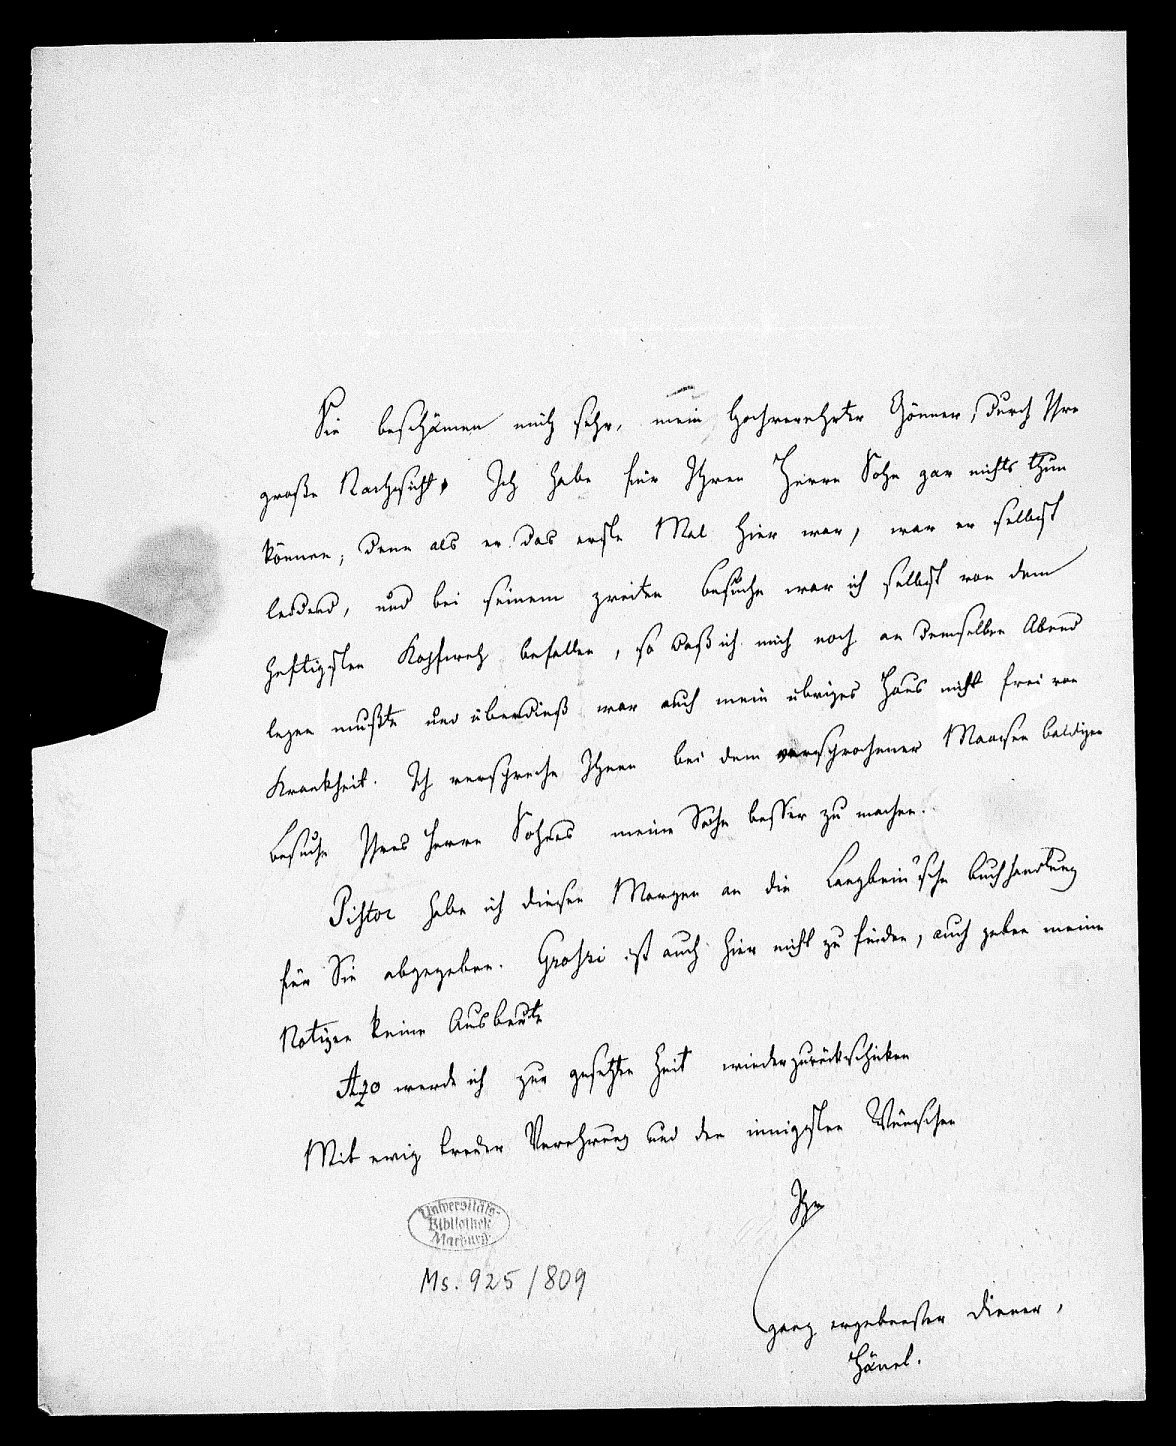 Sie beschämen mich sehr, mein hochverehrter Gönner, durch Ihre
große Nachsicht. Ich habe für Ihren Herrn Sohn gar nichts thun
können, denn als er das erste Mal hier war, war er selbst
leidend, und bei seinem zweiten Besuche war ich selbst von dem
heftigsten Kopfweh befallen, so daß ich mich noch an demselben Abend
legen mußte und überdieß war auch mein übriges Haus nicht frei von
Krankheit. Ich verspreche Ihnen bei dem versprochenen baldigen
Besuche Ihres Herrn Sohnes meine Sache besser zu machen.
Pistor habe ich diesen Morgen an die Langbein'sche Buchhandlung
für Sie abgegeben. ist auch hier nicht zu finden, auch geben meine
Notizen keine Ausbeute
Azo werde ich zur gesetzten Zeit wieder zurückschicken
Mit ewig treuer Verehrung und den innigsten Wünschen
Ihr
Universitäts-
Bibliothek
Marburg
Ms. 925/809
ganz ergebenster Diener,
Hänel.